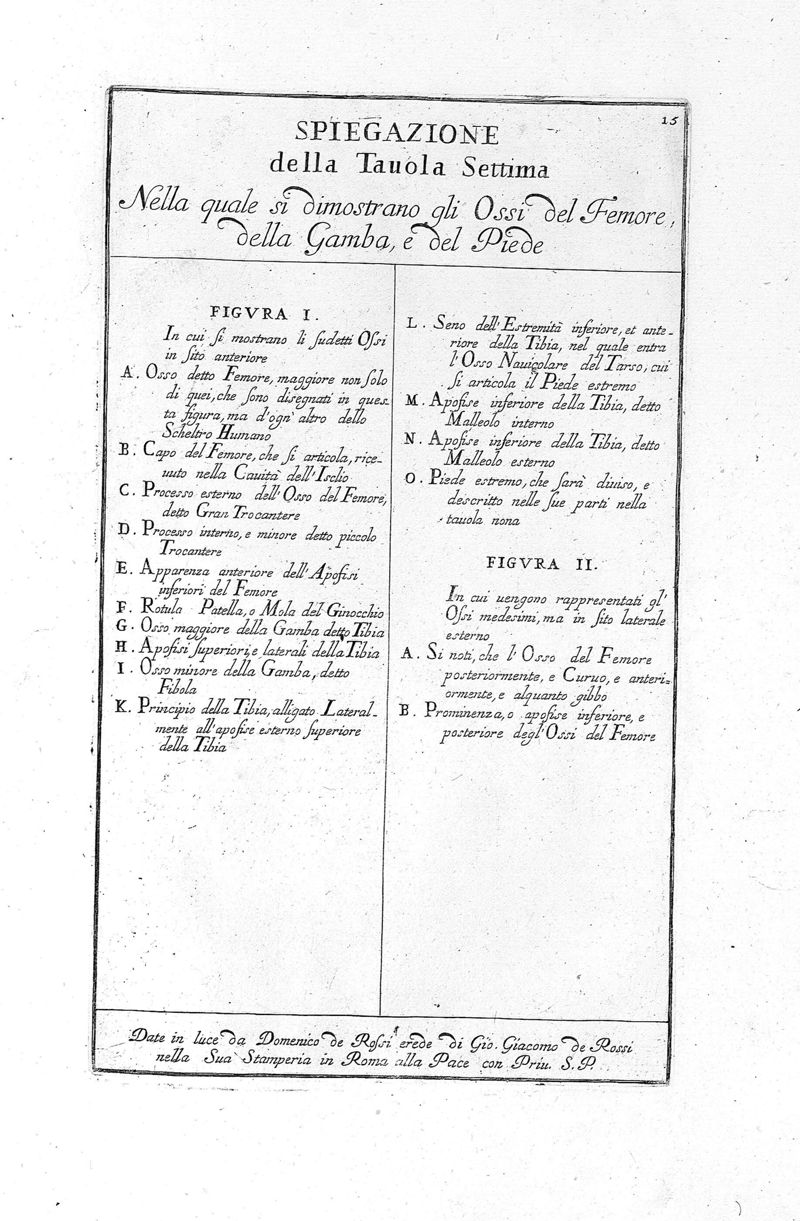 15
SPIEGAZIONE
della Tauola Settima
Nella quale si dimostrano gli Ossi del Femore,
della Gamba, e del Piede
FIGVRA I.
In cui ſi mostrano li ſudetti Oſsi
in ſito anteriore
A. Osso detto Femore, maggiore non ſolo
di quei, che ſono disegnati in ques-
ta figura, ma d'ogn' altro dello
Scheltro Humano
B. Capo del Femore, che ſi articola, rice-
uuto nella Cauità dell'Ischio
C. Processo esterno dell'Osso del Femore,
detto Gran Trocantere
D. Processo interno, e minore detto piccolo
Trocantere
E. Apparenza anteriore dell'Apofisi
inferiori del Femore
F. Rotula Patella, o Mola del Ginocchio
G. Osso maggiore della Gamba detto Tibia
H. Apofisi ſuperiori, e laterali della Tibia
I. Osso minore della Gamba, detto
Fibola
K. Principio della Tibia, alligato Lateral-
mente all'apofise esterno ſuperiore
della Tibia
L. Seno dell'Estremità inferiore, et ante-
riore della Tibia, nel quale entra
l'Osso Nauigolare del Tarso, cui
ſi articola il Piede estremo
M. Apofise inferiore della Tibia, detto
Malleolo interno
N. Apofise inferiore della Tibia, detto
Malleolo esterno
O. Piede estremo, che ſarà diuiso, e
descritto nelle ſue parti nella
tauola nona
FIGVRA II.
In cui uengono rappresentati gl'
Oſsi medesimi, ma in ſito laterale
esterno
A. Si noti, che l'Osso del Femore
posteriormente, e Curuo, e anteri-
ormente, e alquanto gibbo
B. Prominenza, o apofise inferiore, e
posteriore degl'Ossi del Femore
Date in luce da Domenico de Roſsi erede di Gio. Giacomo de Rossi
nella Sua Stamperia in Roma alla Pace con Priu. S. P.